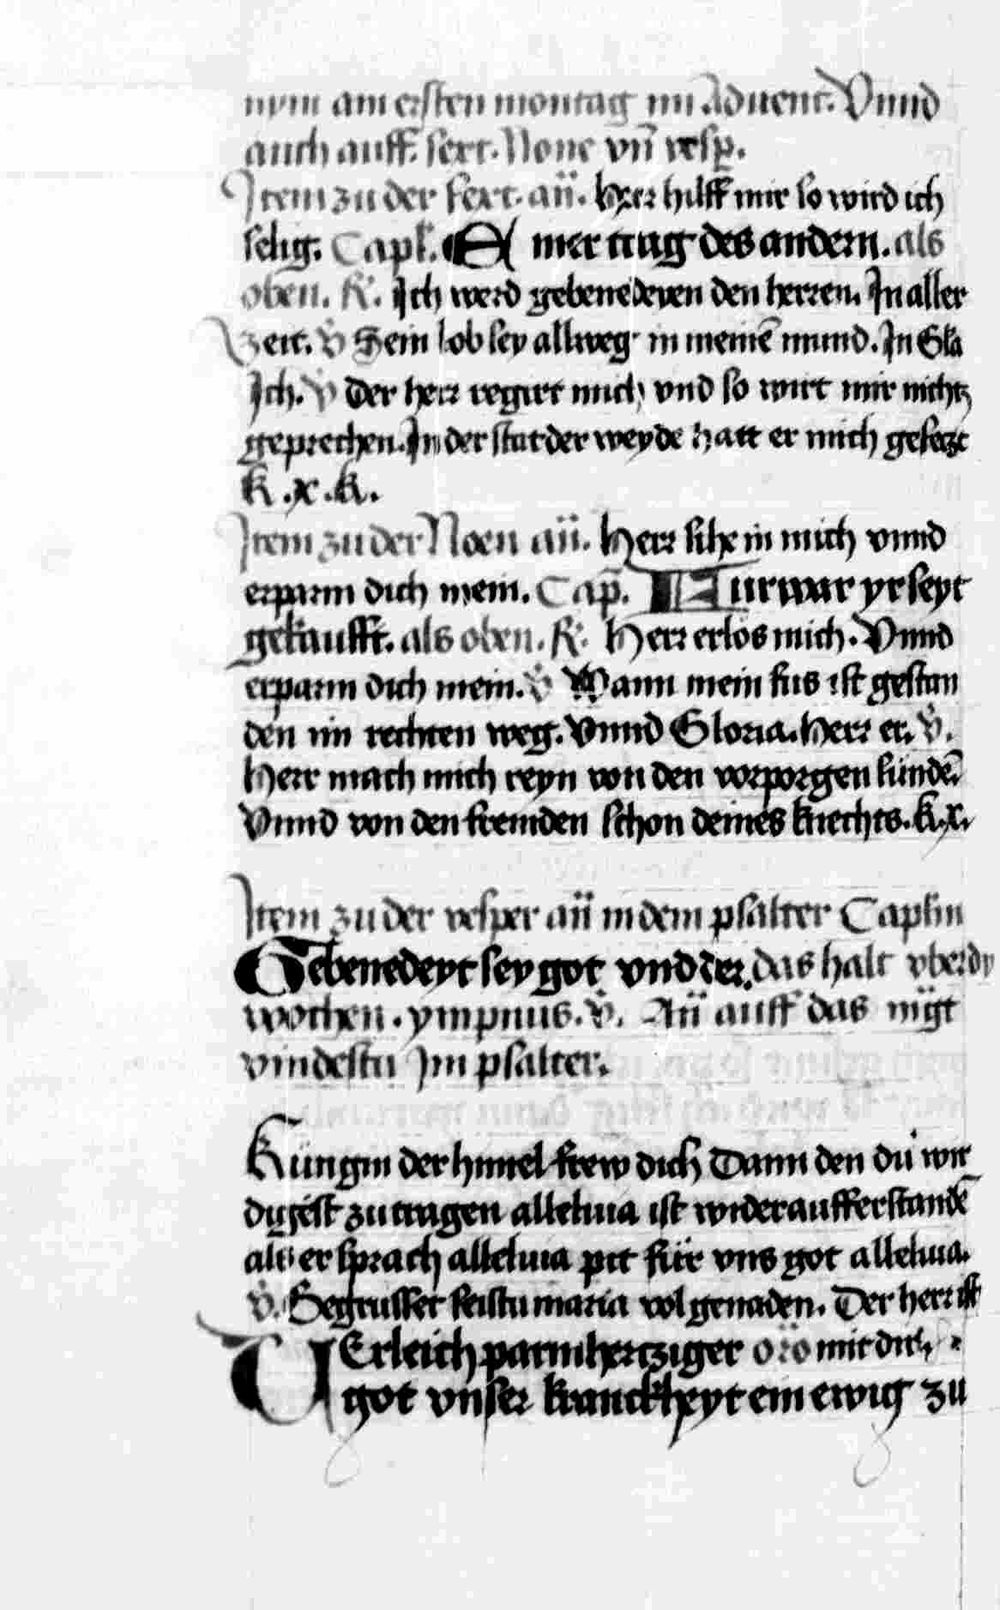 nym am ersten montag im Aduent. Vnnd
auch auff. sext. None vn̄ vesp̄.
Item zu der sext. an̄. herr hilff mir so wird ich
selig. Capl̄. Ainer trag des andern. als
oben. R̄. Ich werd gebenedeyen den herren. In aller
Zeit. v̄ Sein lob sey allweg in meinē mund. In Gla
Ich. v̄ Der herr regirt mich vnd so wirt mir nichtz
geprechen. In der stat der weyde hatt er mich gesetzt
k. x. k.
Item zu der Noen an̄. Herr sihe in mich vnnd
erparm dich mein. Cap̄. Furwar yr seyt
gekaufft. als oben. R̄. Herr erlös mich. Vnnd
erparm dich mein. v̄ Wann mein fus ist gestan
den im rechten weg. Vnnd Gloria. Herr er. v̄.
Herr mach mich reyn von den vorporgen sündē
Vnnd von den fremden schon deines knechts. k. x.
Item zu der vesper an̄ in dem psalter Caplin
Gebenedeyt sey got vnd der. das halt vber dy
wochen. ympnus. v̄. An̄ auff das mgt
vindestu Im psalter.
Küngin der himel frew dich Dann den du wir
digest zu tragen alleluia ist wider aufferstandē
als er sprach alleluia pit für vns got alleluia.
v̄. Gegrusset seistu maria vol genaden. Der herr ist
VErleich parmhertziger oro mit dir.
got vnser kranckheyt ein ewig zu